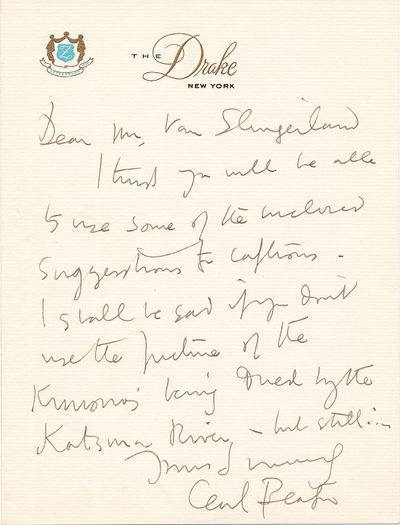 THE Drake
NEW YORK
Dear Mr. Van Slingerland
I trust you will be able
to use some of the enclosed
suggestions for captions -
I shall be sad if you don't
use the picture of the
Kimonos being dried by the
River, - but still...
Yours sincerely
Cecil Beaton